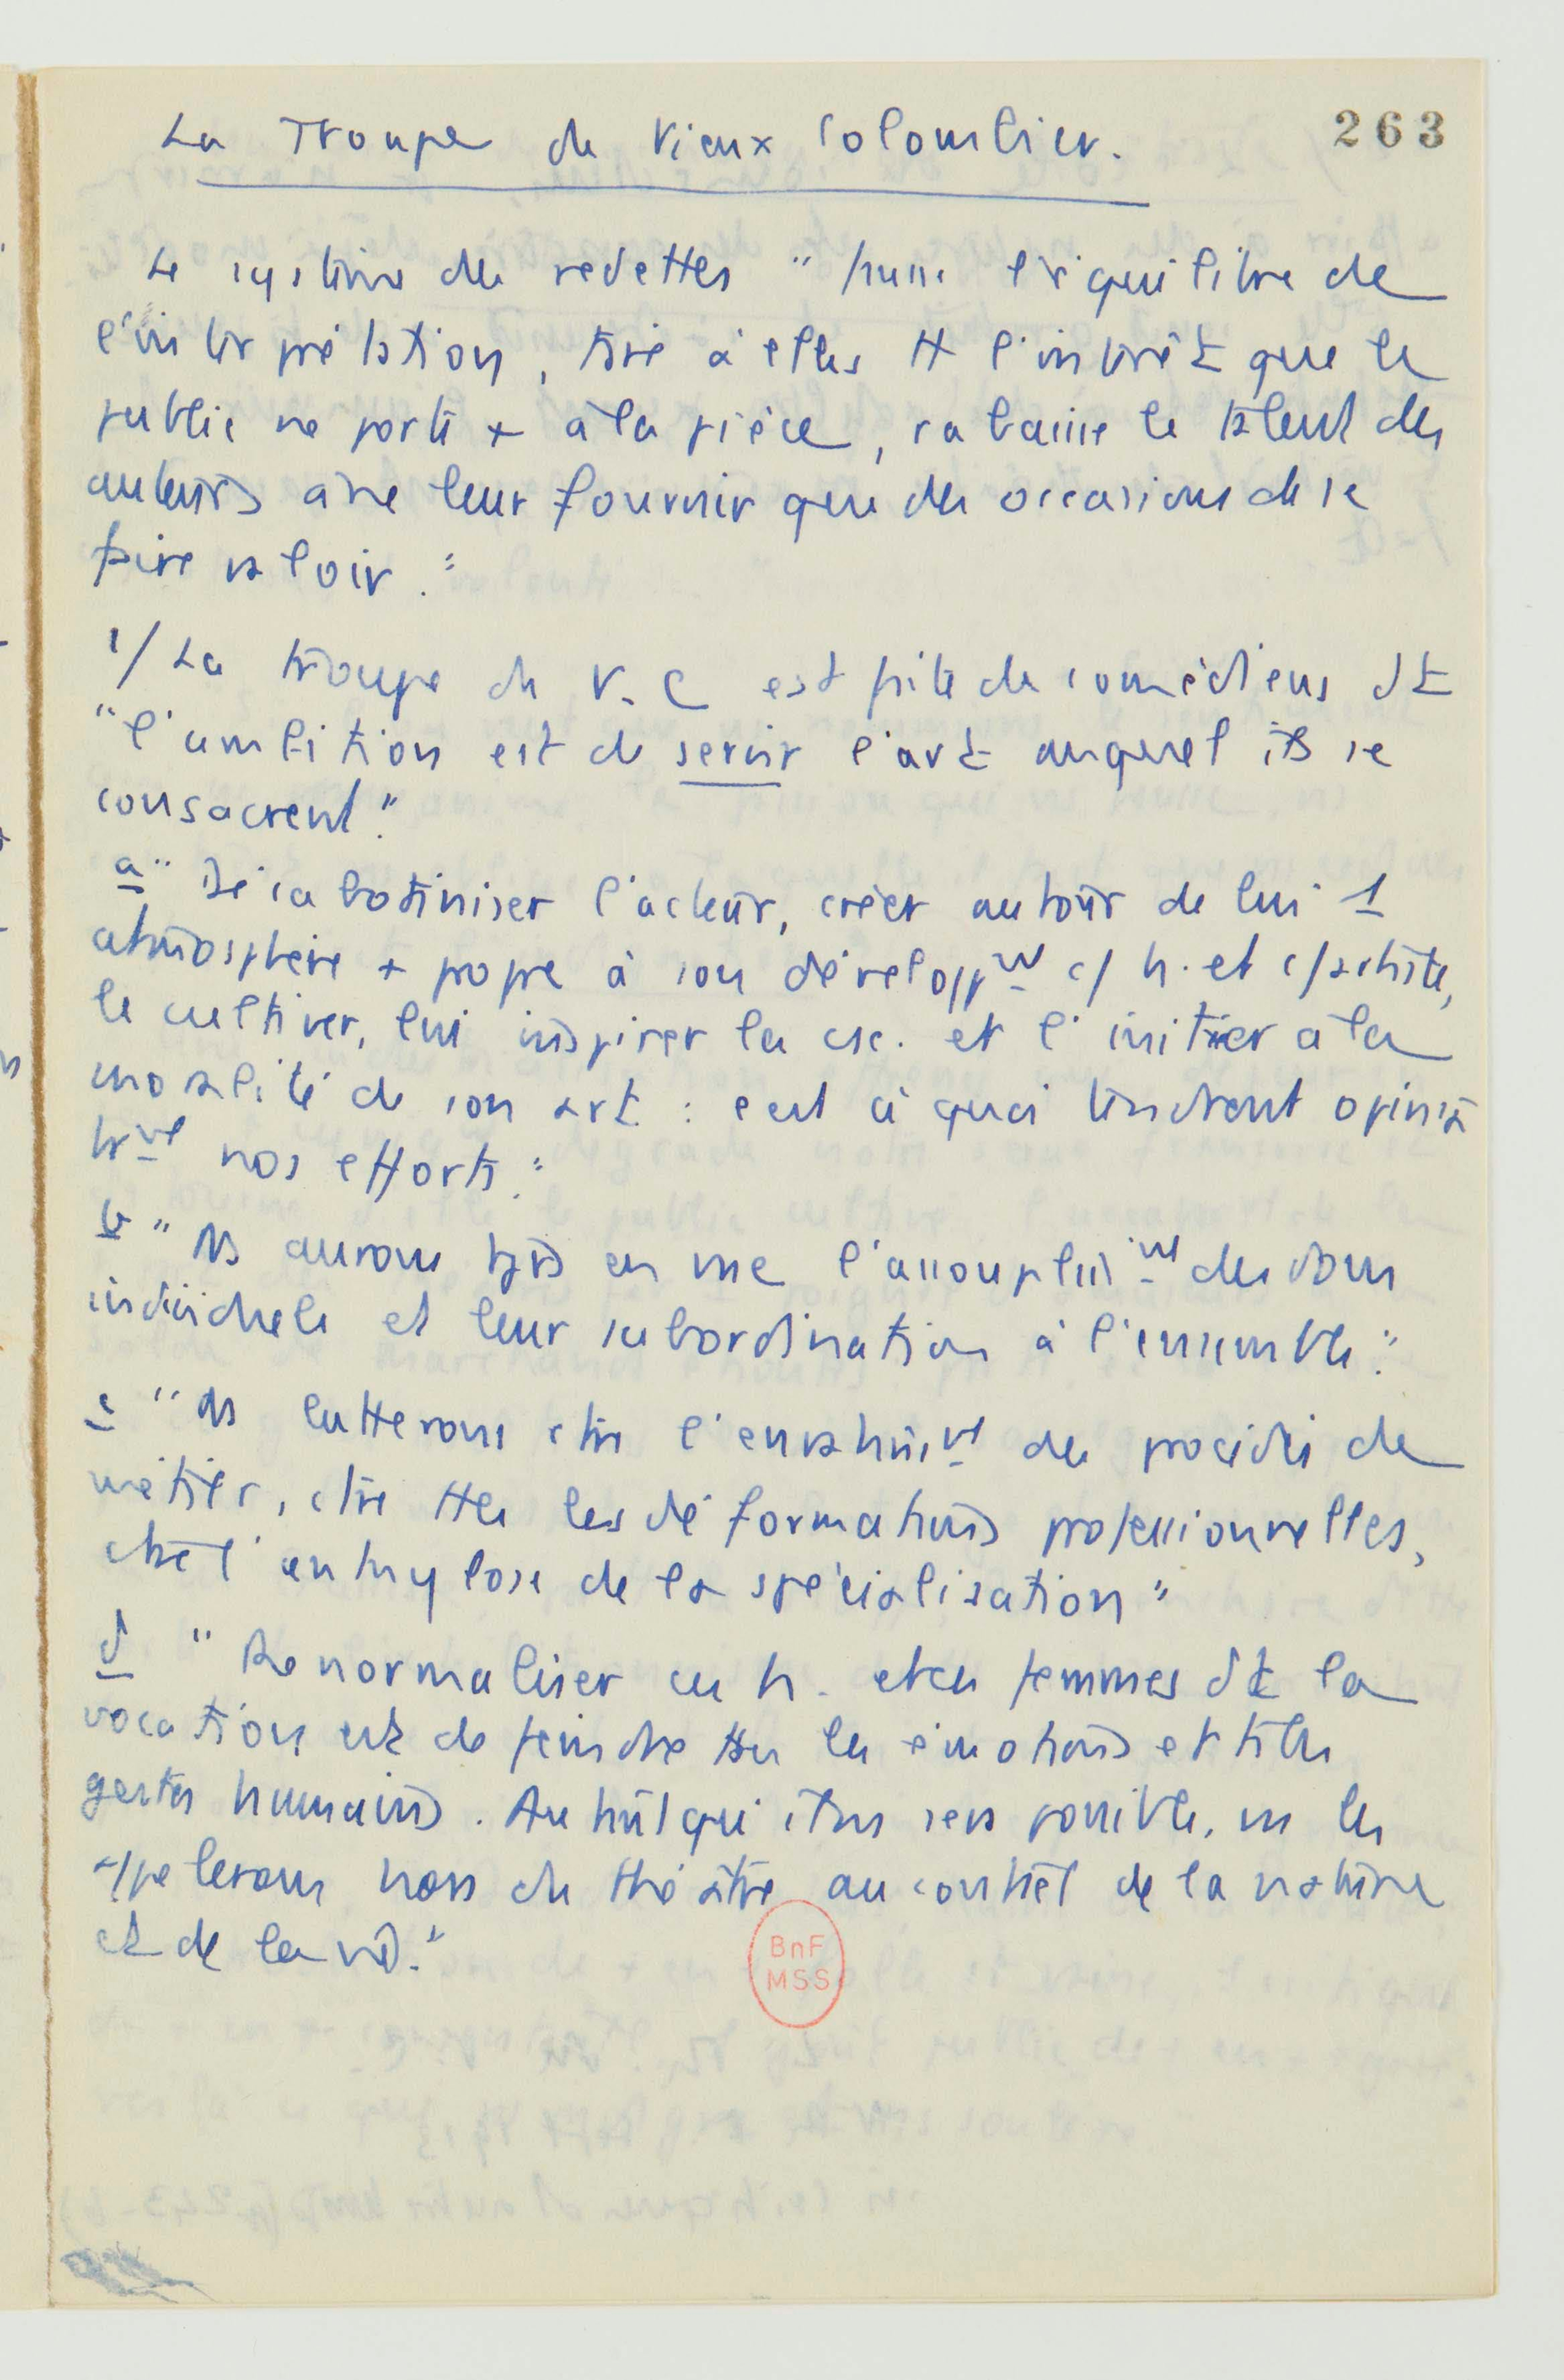 263
La Troupe du Vieux Colombier.
Le système des vedettes " fausse l'équilibre de
l'interprétation, tire à elles tt l'intérêt que le
public ne porte + à la pièce, rabaisse le talent des
auteurs à ne leur fournir que des occasions de se
faire valoir."
1/ La troupe du V. C est faite de comédiens dt
"l'ambition est de servir l'art auquel ils se
consacrent."
a " Décabotiniser l'acteur, créer autour de lui 1
atmosphère + propre à son développmt c/ h. et c/ artiste,
le cultiver, lui inspirer la csc. et l'initier à la
moralité de son art : c'est à quoi tendront opiniâ
trmt nos efforts."
b " Ns aurons tjrs en vue l'assouplissmt des dons
individuels et leur subordination à l'ensemble."
c " Ns lutterons ctre l'envahissmt des procédés de
métier, ctre ttes les déformations professionnelles,
ctre l'ankylose de la spécialisation"
d " Renormaliser ces h. et ces femmes dt la
vocation est de feindre ttes les émotions et ts les
gestes humains. Autant qu'il ns sera possible, ns les
appelerons hors du théâtre au contact de la nature
et de la vie."
BnF
MSS